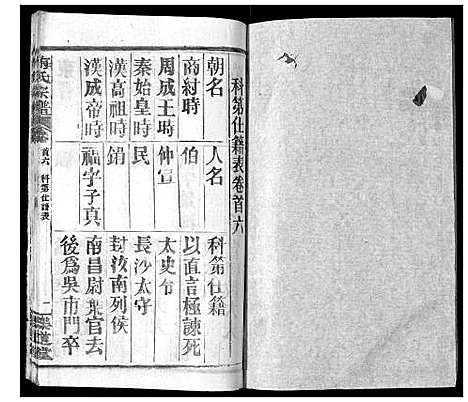 科第仕籍表卷首六
朝名 人名 科第仕籍
商紂時 伯 以直言極諫死
周成王時 仲宣 太史令
秦始皇時 民 長沙太守
漢高祖時 鋗 封汝南列侯
漢成帝時 福字子真 南昌尉棄官去
後爲吳市門卒
梅氏宗譜 卷首六 科第仕籍表 一 樂道堂